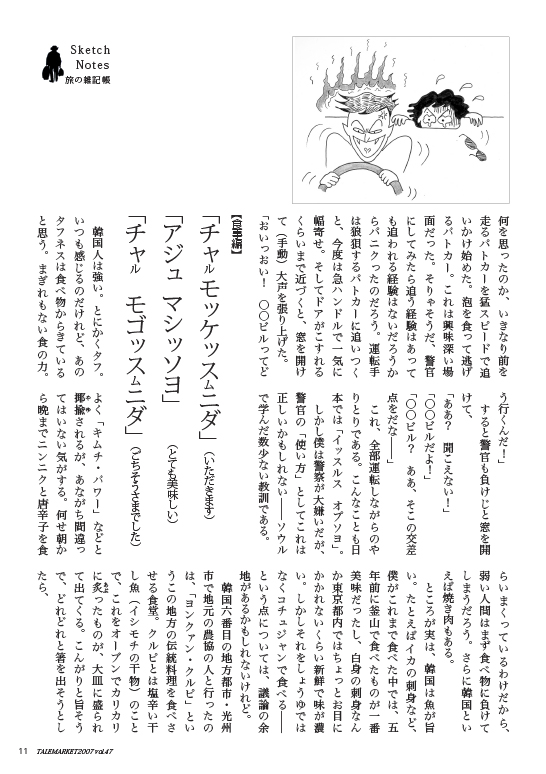 Sketch
Notes
旅の雑記帳
何を思ったのか、いきなり前を
走るパトカーを猛スピードで追
いかけ始めた。泡を食って逃げ
るパトカー。これは興味深い場
面だった。そりゃそうだ、警官
にしてみたら追う経験はあって
も追われる経験はないだろうか
らパニクったのだろう。運転手
は狼狽するパトカーに追いつく
と、今度は急ハンドルで一気に
幅寄せ。そしてドアがこすれる
くらいまで近づくと、窓を開け
て（手動）大声を張り上げた。
「おいっおい！　〇〇ビルってど
う行くんだ！」
すると警官も負けじと窓を開
けて、
「ああ？　聞こえない！」
「〇〇ビルだよ！」
「〇〇ビル？　ああ、そこの交差
点をだな――」
これ、全部運転しながらのや
りとりである。こんなことも日
本では「イッスルス　オプソヨ」。
しかし僕は警察が大嫌いだが、
警官の「使い方」としてこれは
正しいかもしれない――ソウル
で学んだ数少ない教訓である。
【食事編】
「チャルモッケッスムニダ」（いただきます）
「アジュ　マシッソヨ」（とても美味しい）
「チャル　モゴッスムニダ」（ごちそうさまでした）
韓国人は強い。とにかくタフ。
いつも感じるのだけれど、あの
タフネスは食べ物からきている
と思う。まぎれもない食の力。
よく「キムチ・パワー」などと
揶揄されるが、あながち間違っ
てはいない気がする。何せ朝か
ら晩までニンニクと唐辛子を食
らいまくっているわけだから、
弱い人間はまず食べ物に負けて
しまうだろう。さらに韓国とい
えば焼き肉もある。
ところが実は、韓国は魚が旨
い。たとえばイカの刺身など、
僕がこれまで食べた中では、五
年前に釜山で食べたものが一番
美味だったし、白身の刺身なん
か東京都内ではちょっとお目に
かかれないくらい新鮮で味が濃
い。しかしそれをしょうゆでは
なくコチュジャンで食べる――
という点については、議論の余
地があるかもしれないけれど。
韓国六番目の地方都市・光州
市で地元の農協の人と行ったの
は、「ヨンクァン・クルビ」とい
うこの地方の伝統料理を食べさ
せる食堂。クルビとは塩辛い干
し魚（イシモチの干物）のこと
で、これをオーブンでカリカリ
に炙ったものが、大皿に盛られ
て出てくる。こんがりと旨そう
で、どれどれと箸を出そうとし
たら、
11 TALEMARKET2007 vol.47